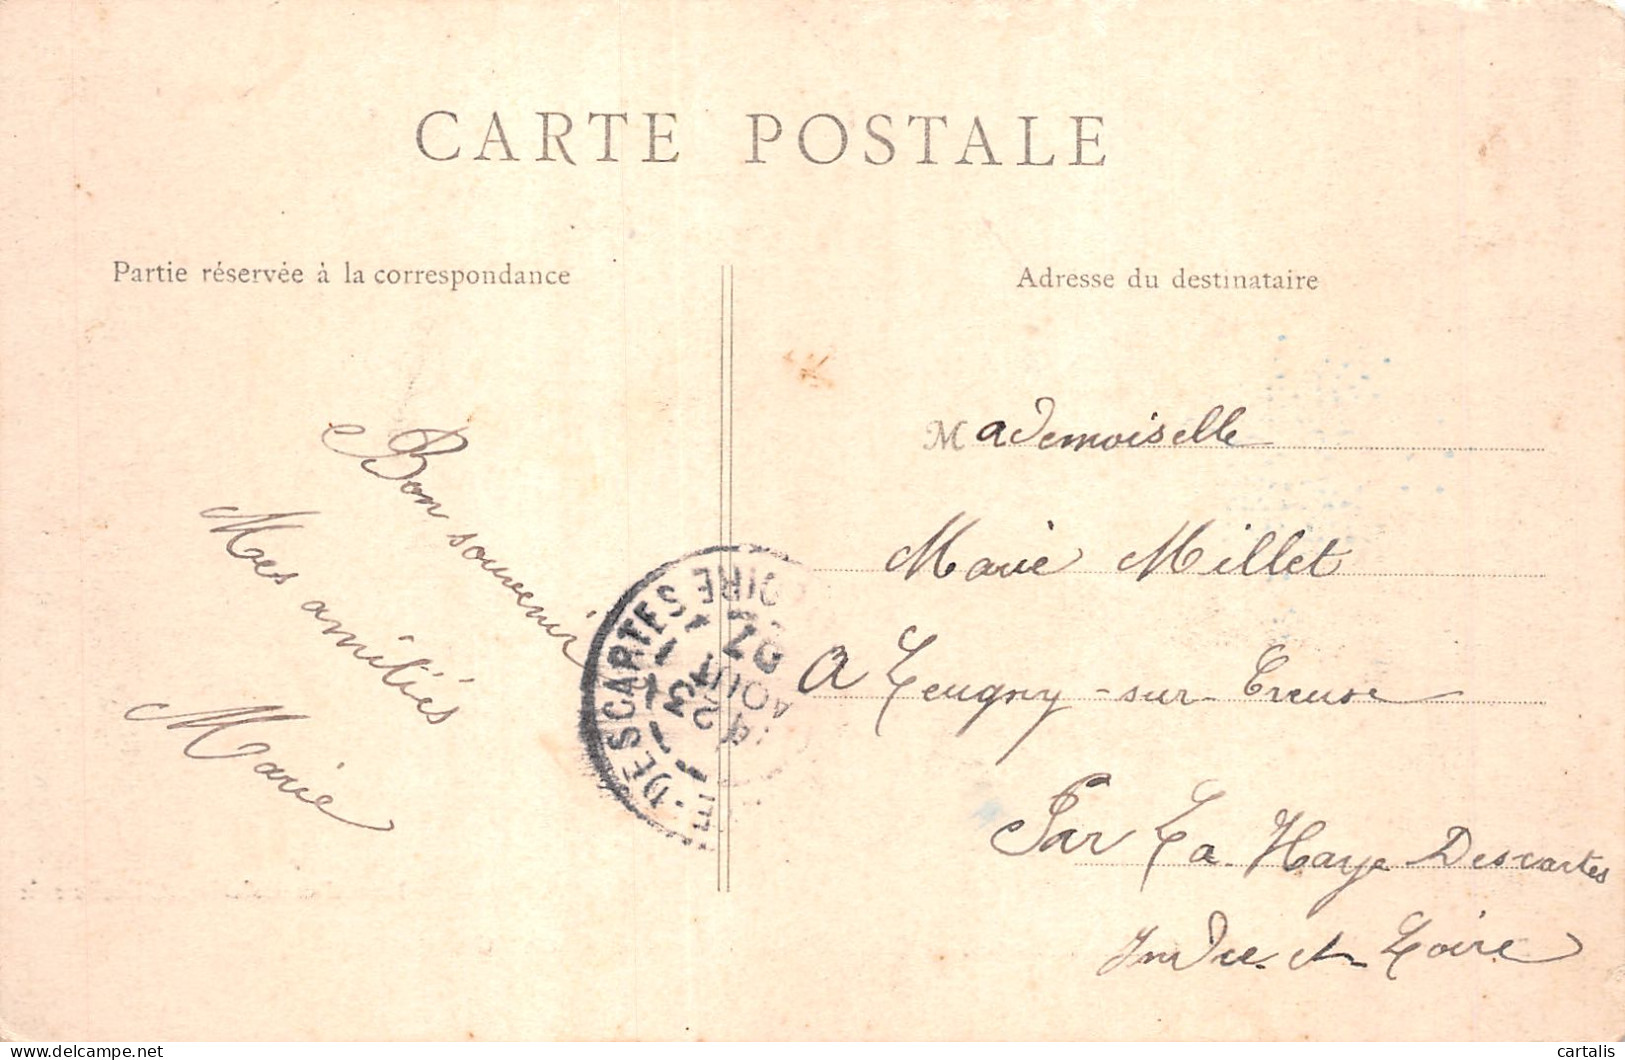 CARTE POSTALE
Partie réservée à la correspondance
Adresse du destinataire
Bon souvenir
Mes amitiés
Marie
DESCARTES
LOIRE
23
AOUT
07
Mademoiselle
Marie Millet
A Leugny-sur-Creuse
Par La Haye Descartes
Indre et Loire
delcampe.net
cartalis